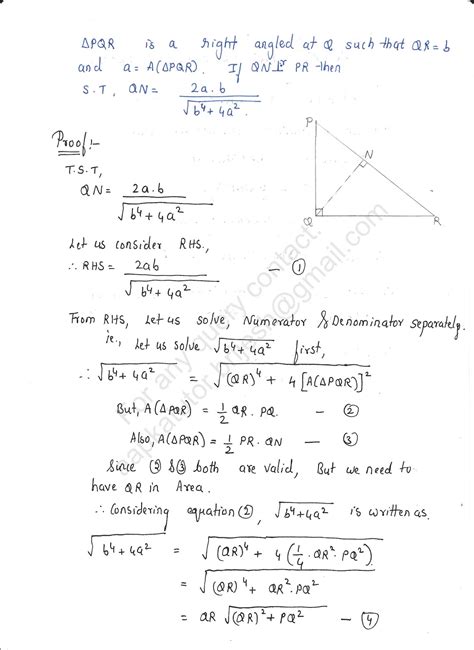 △PQR is a right angled at Q such that QR=b
and a= A(△PQR). If QN⊥ʳ PR then
S.T, QN= 2a.b / √(b⁴+4a²).
Proof:-
T.S.T,
QN= 2a.b / √(b⁴+4a²)
P
N
Q
R
Let us consider RHS.,
∴ RHS= 2ab / √(b⁴+4a²) — ①
From RHS, Let us solve, Numerator & Denominator separately.
ie., Let us solve √(b⁴+4a²) first,
∴ √(b⁴+4a²) = √((QR)⁴ + 4[A(△PQR)]²)
But, A(△PQR) = 1/2 QR. PQ — ②
Also, A(△PQR) = 1/2 PR. QN — ③
Since ② & ③ both are valid, But we need to
have QR in Area.
∴ Considering equation ②, √(b⁴+4a²) is written as.
√(b⁴+4a²) = √((QR)⁴ + 4(1/4 . QR². PQ²).
= √((QR)⁴ + QR². PQ²
= QR √((QR)² + PQ²) — ④
For any query contact:
@gmail.com